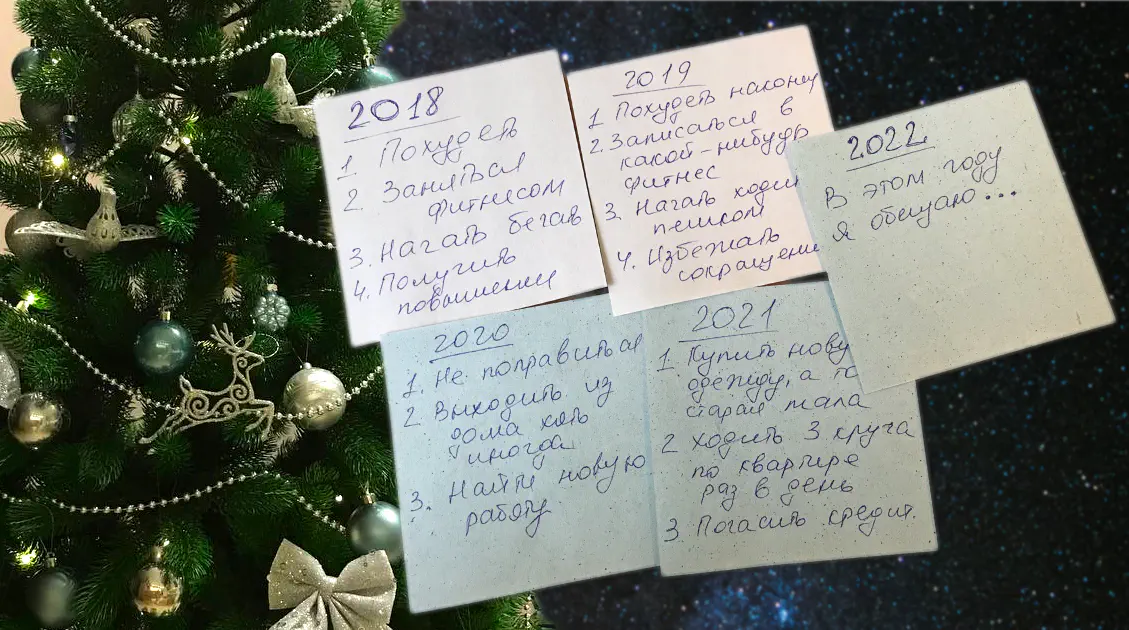 2018
1 Похудеть
2. Заняться
фитнесом
3. Начать бегать
4. Получить
повышении
2019
1 Похудеть наконец
2. Записаться в
какой-нибудь
фитнес
3. Начать ходит
пешком
4. Избежать
сокращени
2022
В этом году
я обещаю...
2020
1. Не поправиться
2 Выходить из
дома хоть
иногда
3. Найти новую
работу
2021
1. Купить нову
одежду, а то
старая мала
2 ходить 3 круга
по квартире
раз в день
3 Погасить кредит.